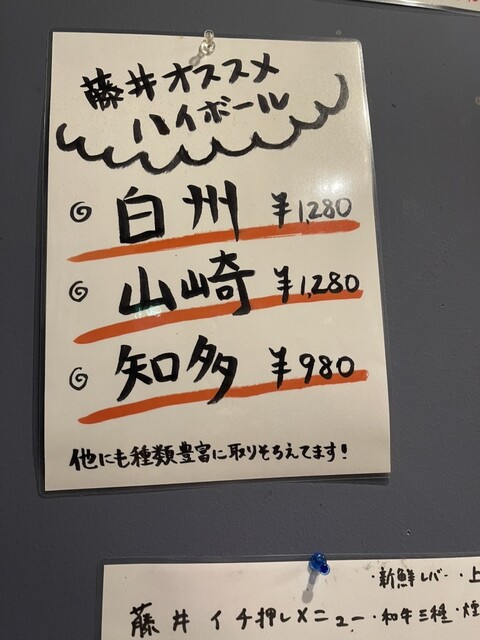 藤井オススメ
ハイボール
白州 ¥1,280
山崎 ¥1,280
知多 ¥980
他にも種類豊富に取りそろえてます!
・新鮮レバー・上
藤井イチ押しメニュー・和牛三種・煙